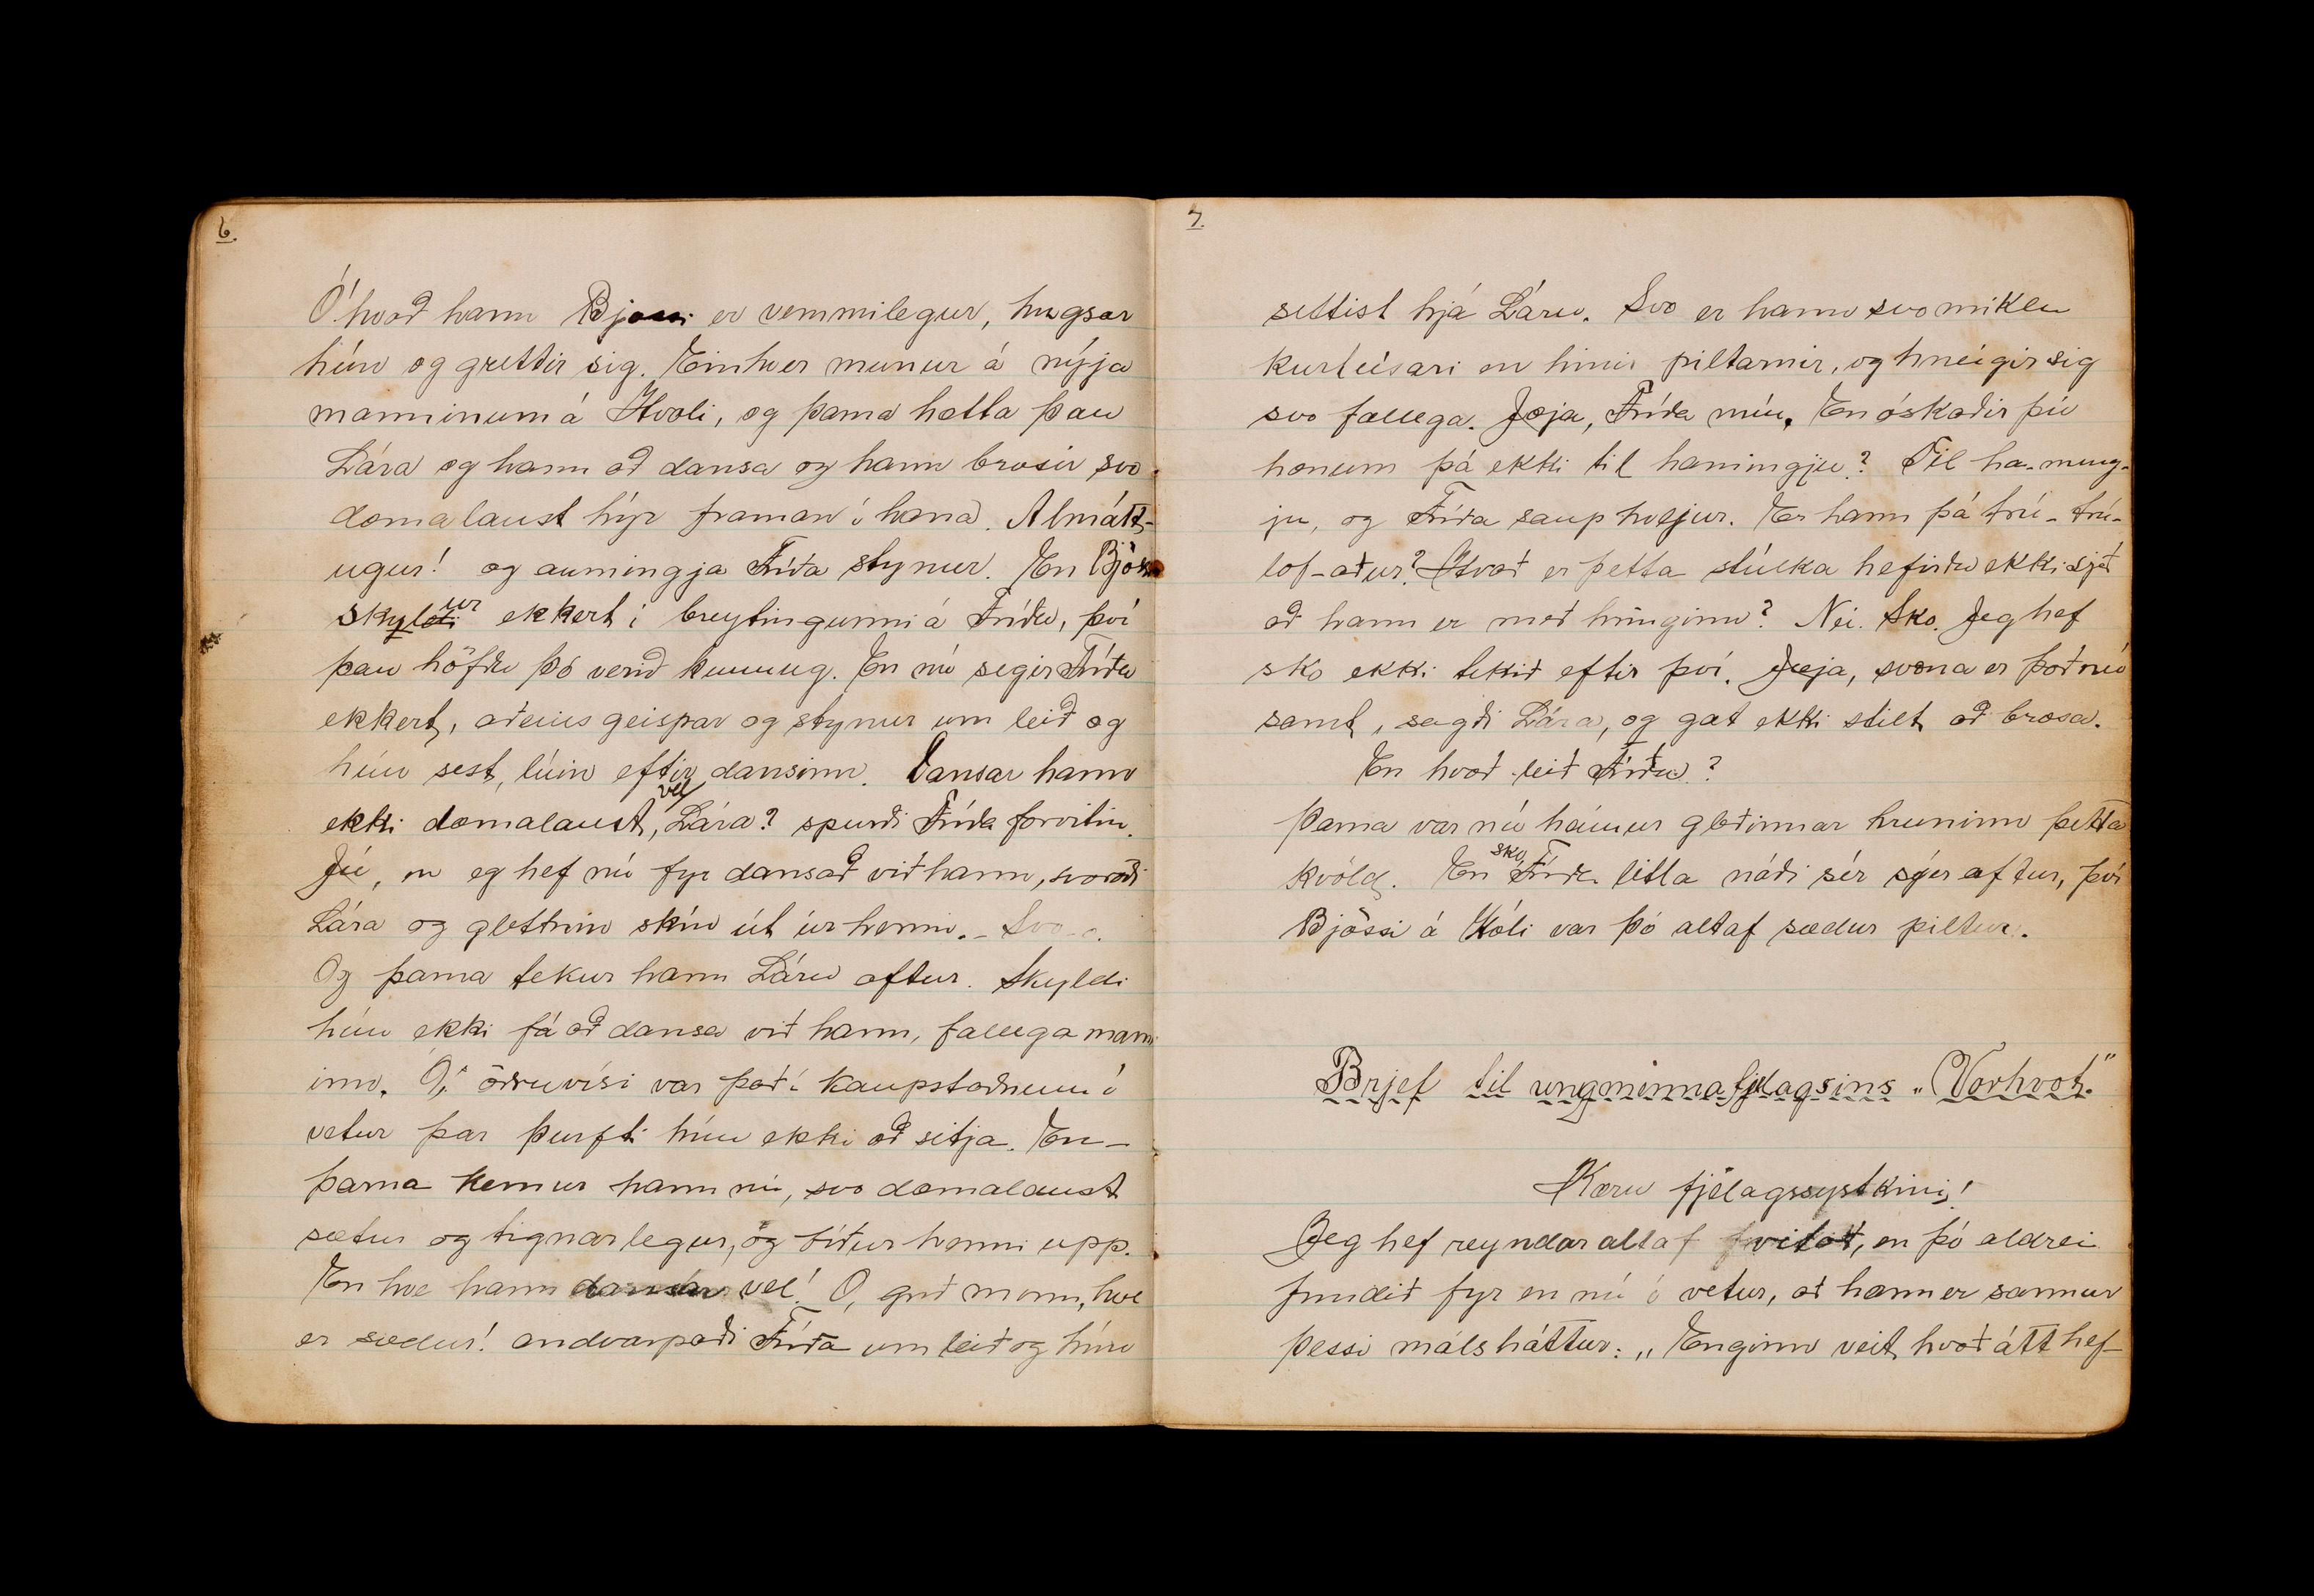 6.
Ó hvað hann Bjössi er vemmilegur, hugsar
hún og grettir sig. Einhver munur á nýja
manninum á Hvoli, og þarna hætta þau
Lára og hann að dansa og hann brosir svo
dæmalaust hýr framan í hana. Almátt-
ugur! og aumingja Fríða stynur. En Björn
skylur ekkert í breytingunni á Fríðu, því
þau höfðu þó verið kunnug. En nú segir Fríða
ekkert, aðeins geispar og stynur um leið og
hún sest, lúin eftir dansinn. Dansar hann
ekki dæmalaust vel, Lára? spurði Fríða forvitin.
Jú, en eg hef nú fyr dansað við hann, svaraði
Lára og glettnin skín út úr henni. - Svo-o.
Og þarna tekur hann Láru aftur. Skyldi
hún ekki fá að dansa við hann, fallega mann
inn. Ó, öðruvísi var það í kaupstaðnum í
vetur þar þurfti hún ekki að sitja. En -
þarna kemur hann nú, svo dæmalaust
sætur og tignarlegur, og býður henni upp.
En hve hann dansar vel! O, guð minn, hve
er sædur! andvarpaði Fríða um leið og hún
7.
settist hjá Láru. Svo er hann svo miklu
kurteisari en hinir piltarnir, og hneigir sig
svo fallega. Jæja, Fríða mín. En óskaðir þú
honum þá ekki til hamingju? Til ha-ming-
ju, og Fríða saup hveljur. Er hann þá trú-trú-
lof-aður? Hvað er þetta stúlka hefirðu ekki sjeð
að hann er með hringinn? Nei. Sko. Jeg hef
sko ekki tekið eftir því. Jæja, svona er það nú
samt, sagði Lára, og gat ekki stilt að brosa.
En hvað leið Fríðu?
Þarna var nú háimur gleðinnar hruninn þetta
kvöld. En sko, Fríða litla náði sér sýer aftur, því
Bjössi á Hóli var þó altaf sædur piltur.
Brjef til ungmennafjelagsins „Vorhvöt."
Kæru fjélagssystkini!
Jeg hef reyndar altaf vitað, en þó aldrei
fundið fyr en nú í vetur, að hann er sannur
þessi málsháttur: „Enginn veit hvað átt hef-